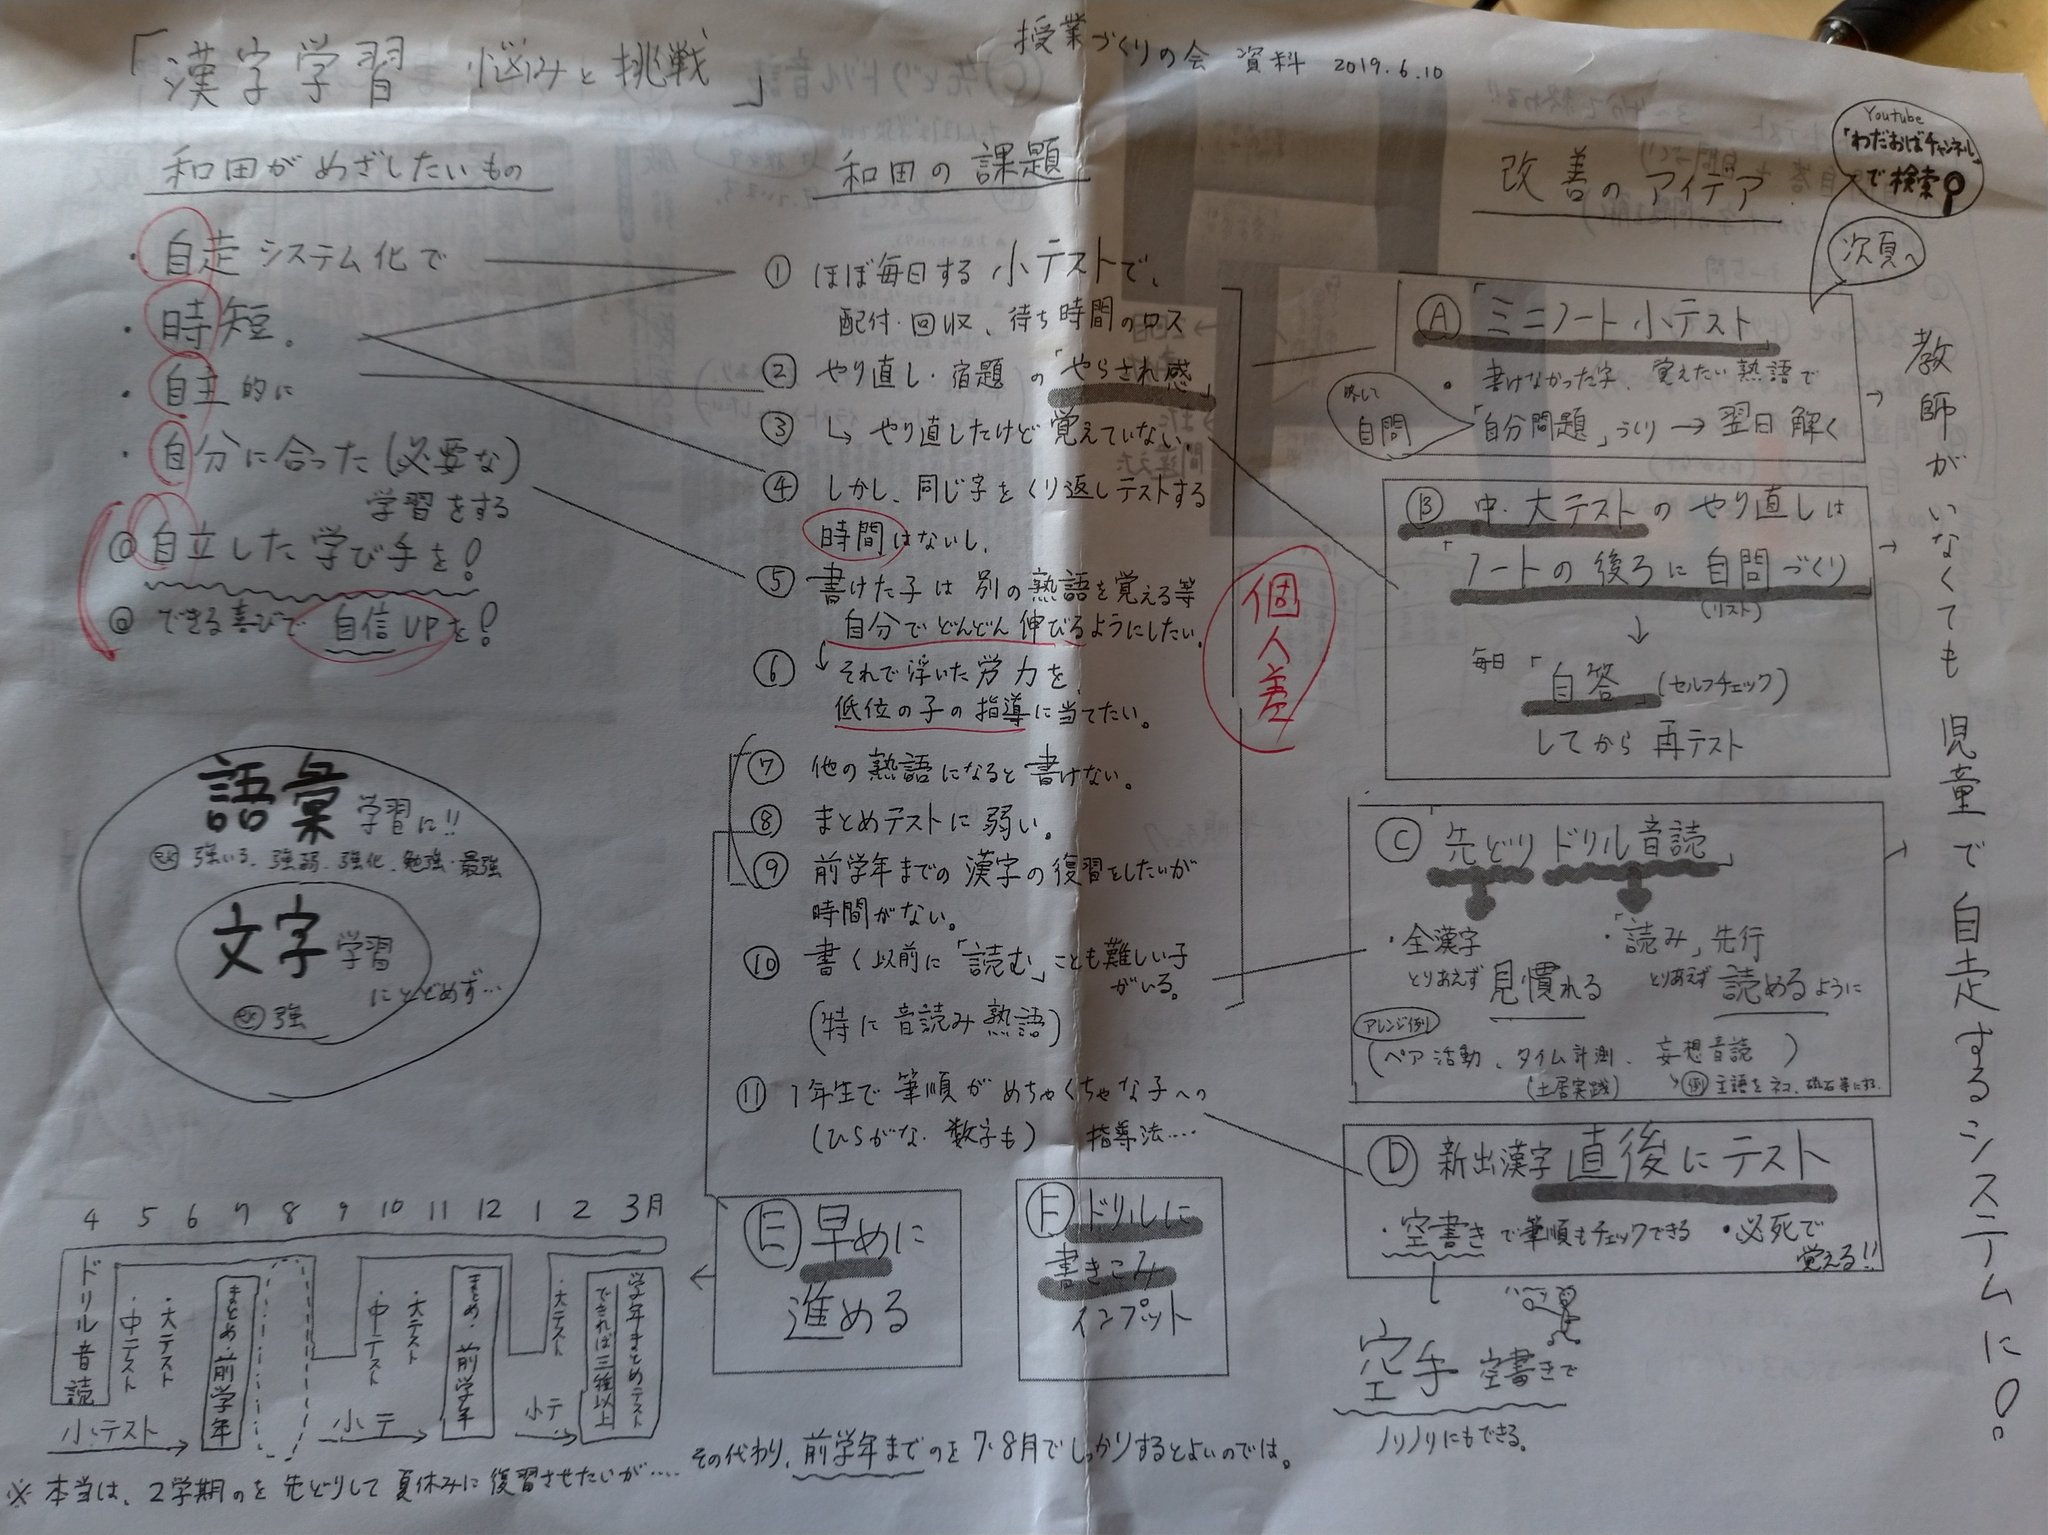 「漢字学習 悩みと挑戦」
授業づくりの会 資料 2019.6.10
和田がめざしたいもの
・自走システム化で
・時短。
・自主的に
・自分に合った(必要な)
学習をする
◎自立した学び手を!
◎できる喜びで自信UPを!
語彙学習に!!
強いる、強弱、強化、勉強・最強
文字学習
にとどめず…
強
4 5 6 7 8 9 10 11 12 1 2 3月
ドリル音読
・中テスト
・大テスト
まとめ・前学年
・中テスト
・大テスト
まとめ・前学年
・大テスト
できれば三種以上
学年まとめテスト
小テスト
小テ
小テ
※本当は、2学期のを先どりして夏休みに復習させたいが……
その代わり、前学年までのを7・8月でしっかりするとよいのでは。
和田の課題
① ほぼ毎日する小テストで、
配付・回収、待ち時間のロス
② やり直し・宿題の「やらされ感」
③ ↳やり直したけど覚えていない。
④ しかし、同じ字をくり返しテストする
時間はないし、
⑤ 書けた子は別の熟語を覚える等
自分でどんどん伸びるようにしたい。
⑥ それで浮いた労力を、
低位の子の指導に当てたい。
⑦ 他の熟語になると書けない。
⑧ まとめテストに弱い。
⑨ 前学年までの漢字の復習をしたいが
時間がない。
⑩ 書く以前に「読む」ことも難しい子
がいる。
(特に音読み熟語)
⑪ 1年生で筆順がめちゃくちゃな子への
(ひらがな・数字も) 指導法…
個人差
Ⓔ早めに
進める
Ⓕドリルに
書きこみ
インプット
改善のアイデア
Youtube
「わだおばチャンネル」
で検索
次頁へ
Ⓐ「ミニノート小テスト」
・書けなかった字、覚えたい熟語で
「自分問題」づくり→翌日解く
略して
自問
Ⓑ中・大テストのやり直しは
「ノートの後ろに自問づくり
(リスト)
↓
毎日「自答」(セルフチェック)
してから再テスト
Ⓒ「先どりドリル音読」
・全漢字
とりあえず見慣れる
・「読み」先行
とりあえず読めるように
アレンジ例
(ペア活動、タイム計測、妄想音読)
(土居実践)
例 主語をネコ、磁石等にする。
Ⓓ新出漢字直後にテスト
・空書きで筆順もチェックできる
・必死で
覚える!!
空手空書きで
ノリノリにもできる。
教師がいなくても児童で自走するシステムに!